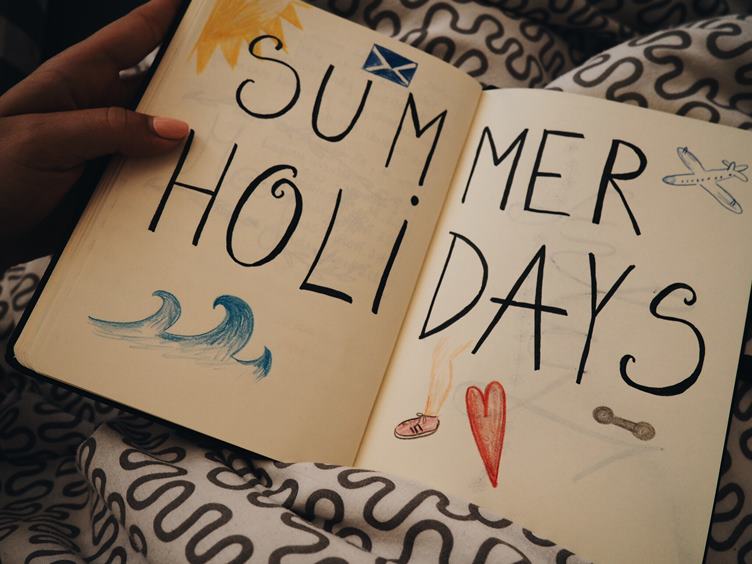 SUMMER
HOLiDAYS